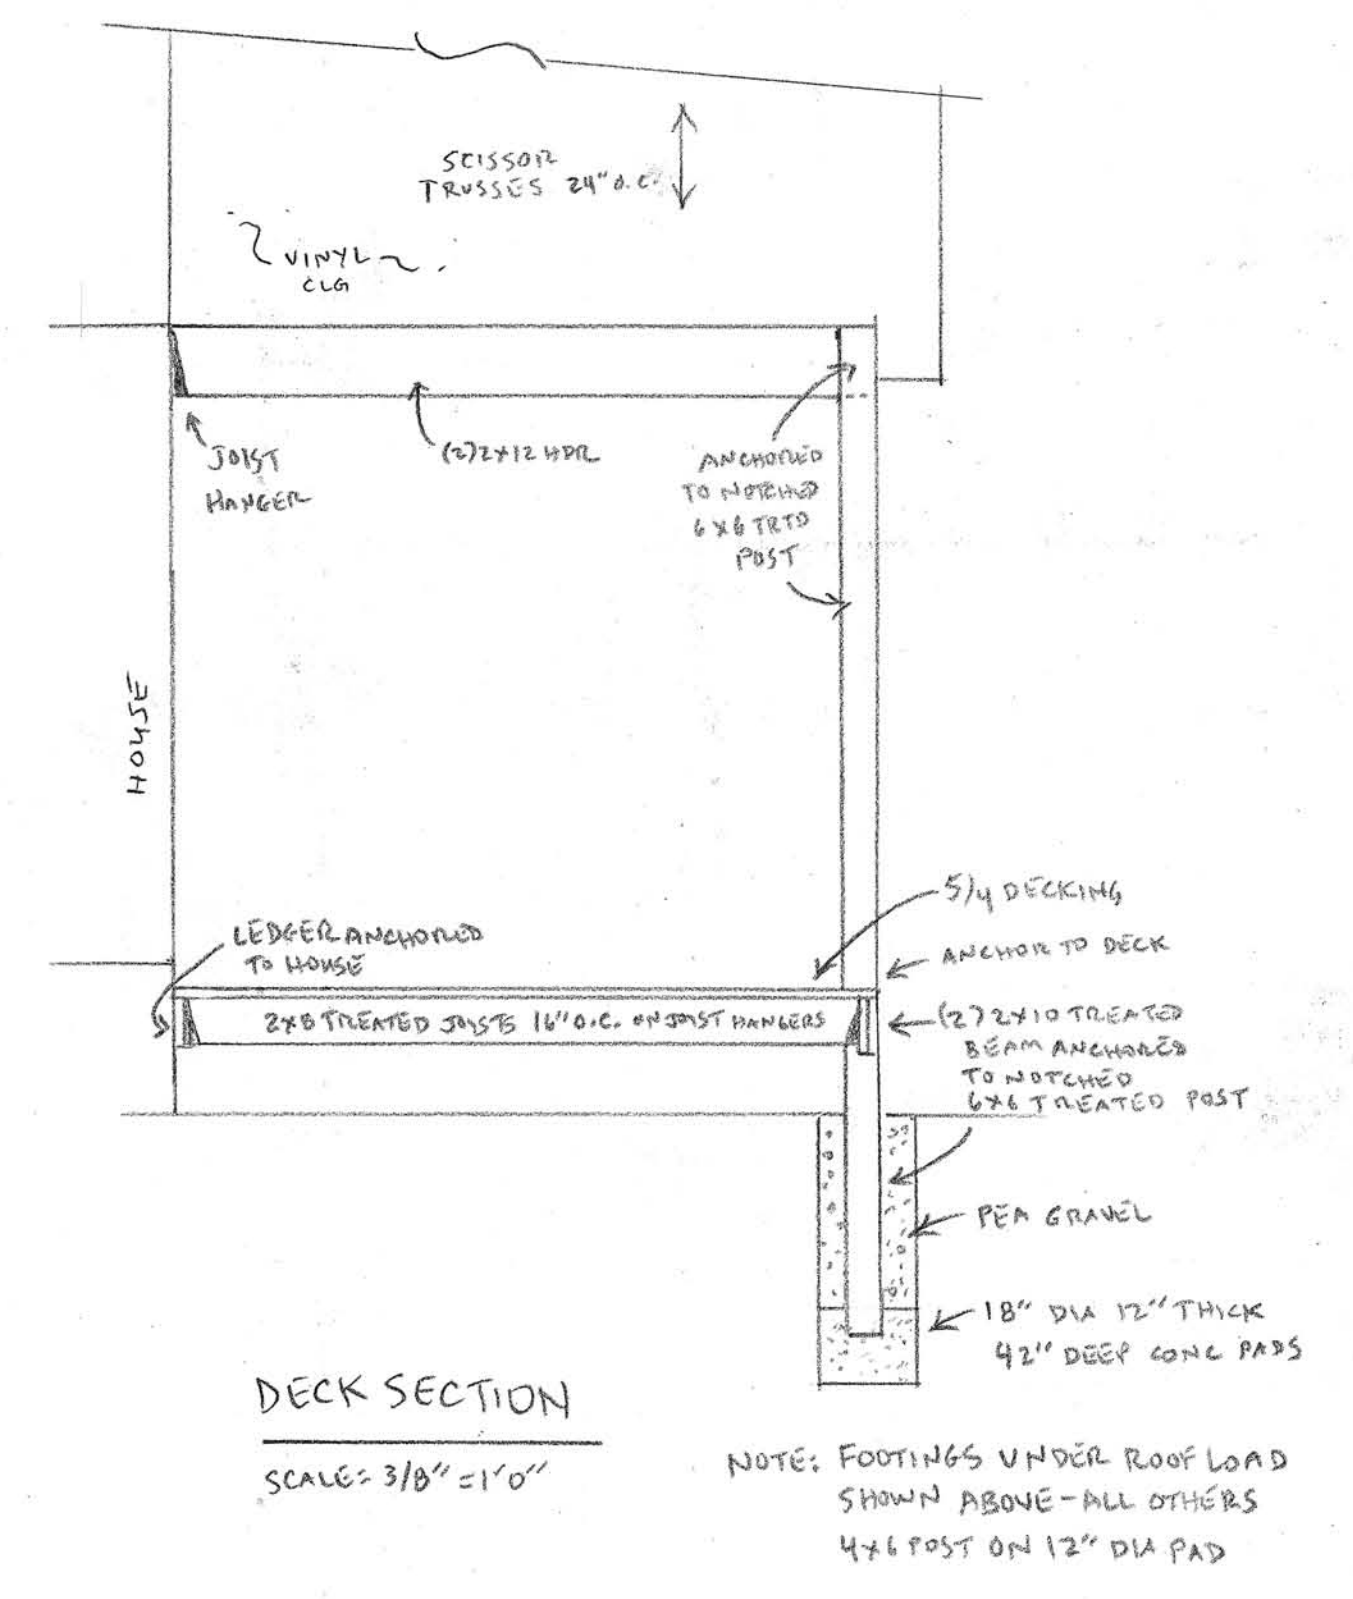 SCISSOR
TRUSSES 24" O.C.
VINYL
CLG
JOIST
HANGER
(2) 2X12 HDR
ANCHORED
TO NOTCHED
6X6 TRTD
POST
HOUSE
5/4 DECKING
LEDGER ANCHORED
TO HOUSE
ANCHOR TO DECK
2X8 TREATED JOISTS 16" O.C. ON JOIST HANGERS
(2) 2X10 TREATED
BEAM ANCHORED
TO NOTCHED
6X6 TREATED POST
PEA GRAVEL
18" DIA 12" THICK
42" DEEP CONC PADS
DECK SECTION
SCALE: 3/8" = 1'0"
NOTE: FOOTINGS UNDER ROOF LOAD
SHOWN ABOVE - ALL OTHERS
4X6 POST ON 12" DIA PAD